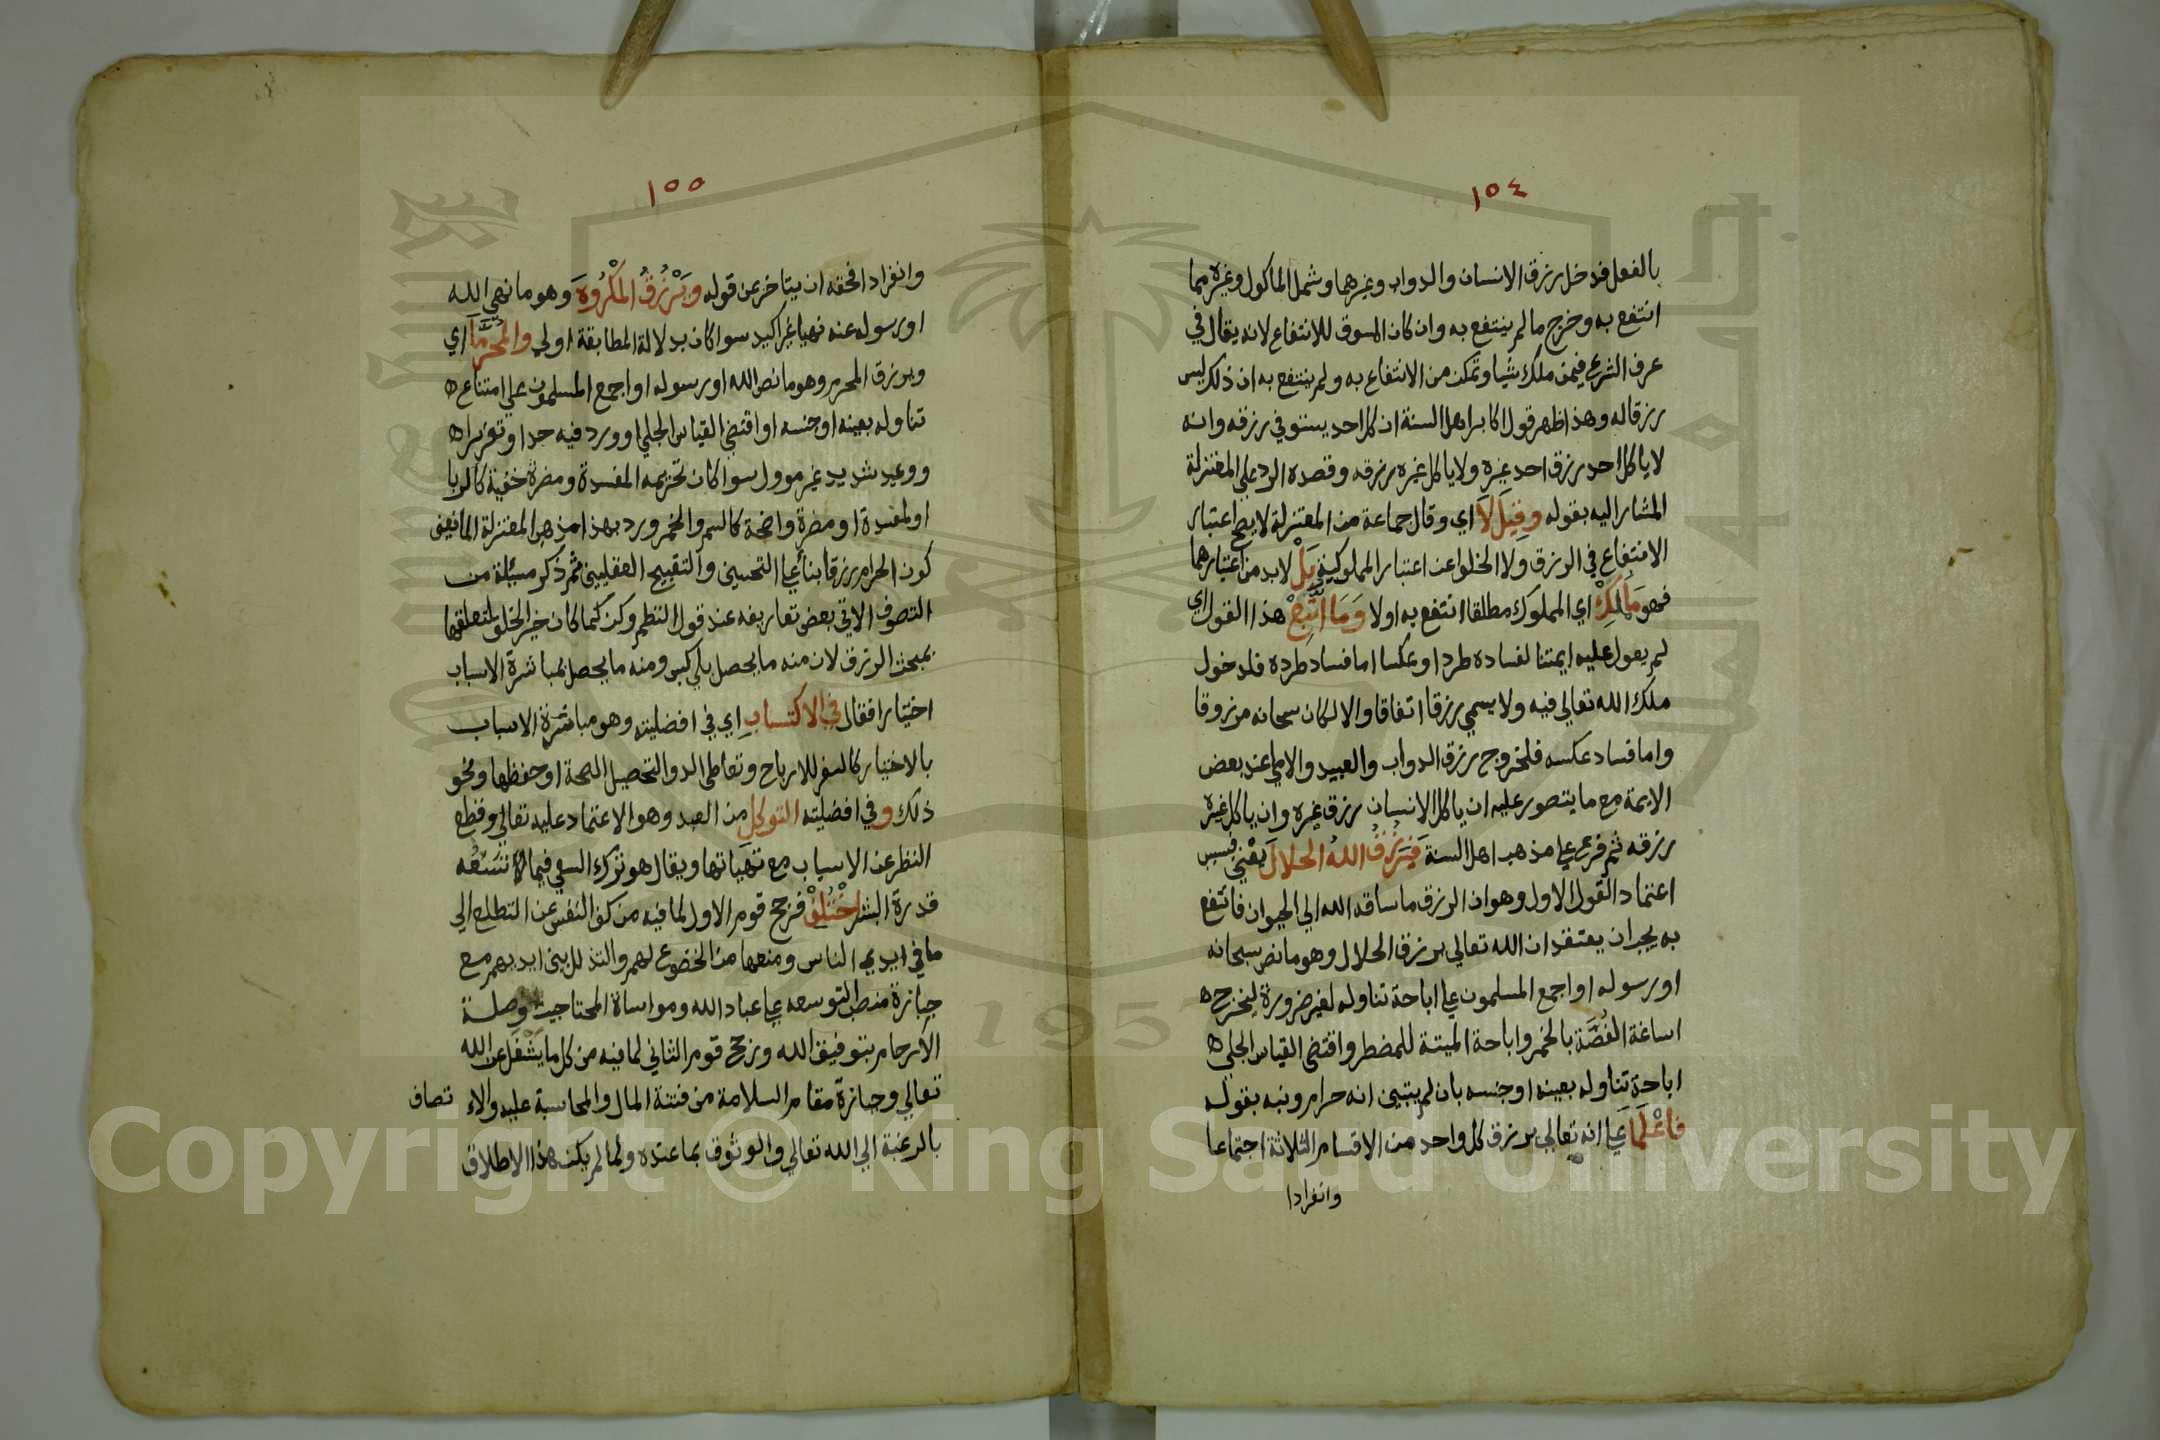 ١٥٤
بالفعل فدخل رزق الانسان والدواب وغيرهما وشمل الماكول وغيره مما
انتفع به وخرج ما لم ينتفع به وان كان المسوق للانتفاع لانه يقال في
عرف الشرع فيمن ملك شيا وتمكن من الانتفاع به ولم ينتفع به ان ذلك ليس
رزقاله وهذا ظهر قول اكابر اهل السنة ان كل احد يستوفي رزقه وانه
لا ياكل احد رزق احد غيره ولا ياكل غيره رزقه وقصده الرد على المعتزلة
المشار اليه بقوله وقيل لا اي وقال جماعة من المعتزلة لا يصح اعتبار
الانتفاع في الرزق ولا الخلو عن اعتبار المملوكية بل لا بد من اعتبارهما
فهو ما ملك اي المملوك مطلقا انتفع به اولا وما اتبع هذا القول اي
لم يعول عليه ايمتنا لفساده طردا وعكسا اما فساد طرده فلدخول
ملك الله تعالي فيه ولا يسمي رزقا اتفاقا والا لكان سبحانه مرزوقا
واما فساد عكسه فلخروج رزق الدواب والعبيد والاما عند بعض
الايمة مع ما يتصور عليه ان ياكل الانسان رزق غيره وان ياكل غيره
رزقه ثم فرع على مذهب اهل السنة فيرزق الله الحلال يعني فبسبب
اعتماد القول الاول وهو ان الرزق ما ساقه الله الي الحيوان فانتفع
به يجب ان يعتقد ان الله تعالي يرزق الحلال وهو ما نص سبحانه
او رسوله او اجمع المسلمون على اباحة تناوله لغير ضرورة ليخرج
اساغة الغصة بالخمر واباحة الميتة للمضطر واقتضي القياس الجلي
اباحة تناوله بعينه او جنسه بان لم يتبين انه حرام ونبه بقوله
فاعلما على انه تعالي يرزق كل واحد من الاقسام الثلاثة اجتماعا
وانفرادا
١٥٥
وانفرادا فحقه ان يتاخر عن قوله ويرزق المكروه وهو ما نهي الله
او رسوله عنه نهيا غير اكيد سوا كان بدلالة المطابقة اولي والمحرما اي
ويرزق المحرم وهو ما نص الله او رسوله او اجمع المسلمون على امتناع
تناوله بعينه او جنسه او اقتضي القياس الجلي او ورد فيه حد او تعزير
ووعيد شديد غير موول سوا كان تحريمه المفسدة ومضرة خفية كالربا
او لمفسدة او مضرة واضحة كالسم والخمر ورد بهذا مذهب المعتزلة المانعين
كون الحرام رزقا بنا على التحسين والتقبيح العقليين ثم ذكر مسئلة من
التصوف الاتي بعض تعاريفه عند قول النظم وكن كما كان خير الخلق لتعلقها
بمبحث الرزق لان منه ما يحصل بلا كسب ومنه ما يحصل بمباشرة الاسباب
اختيارا فقال في الاكتساب اي في افضليته وهو مباشرة الاسباب
بالاختيار كالسفر للارباح وتعاطي الدوا لتحصيل الصحة او حفظها ونحو
ذلك وفي افضليته التوكل من العبد وهو الاعتماد عليه تعالي وقطع
النظر عن الاسباب مع تهياتها ويقال هو ترك السعي فيما لا تسعه
قدرة البشر اختلف فرجح قوم الاول لما فيه من كف النفس عن التطلع الي
ما في ايدي الناس ومنعها من الخضوع لهم والتذلل بين ايديهم مع
حيازة منصب التوسعه على عباد الله ومواساة المحتاجين وصلة
الارحام بتوفيق الله ورجح قوم الثاني لما فيه من كل ما يشغل عن الله
تعالي وحيازة مقام السلامة من فتنة المال والمحاسبة عليه والا تصاف
بالرغبة الي الله تعالي والوثوق بما عنده ولما لم يكن هذا الاطلاق
1957
Copyright © King Saud University